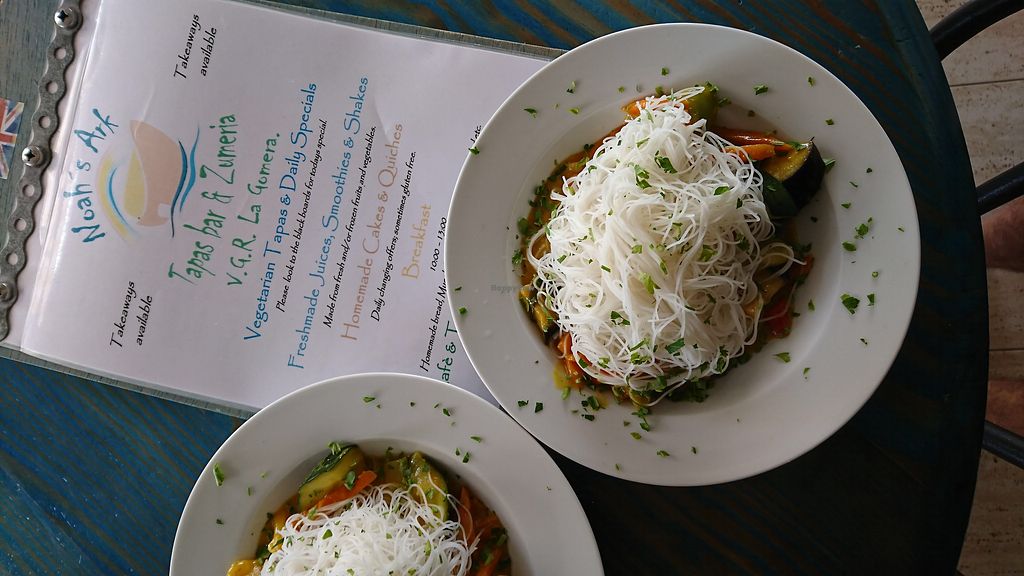 Noah's Ark
Takeaways
available
Takeaways
available
Tapas bar & Zumeria
V.G.R. La Gomera.
Vegetarian Tapas & Daily Specials
Please look to the black boards for todays special.
Freshmade Juices, Smoothies & Shakes
Made from fresh and/or frozen fruits and vegetables.
Homemade Cakes & Quiches
Daily changing offers, sometimes gluten free.
Breakfast
10:00 - 13:00
Homemade bread,
afè & T